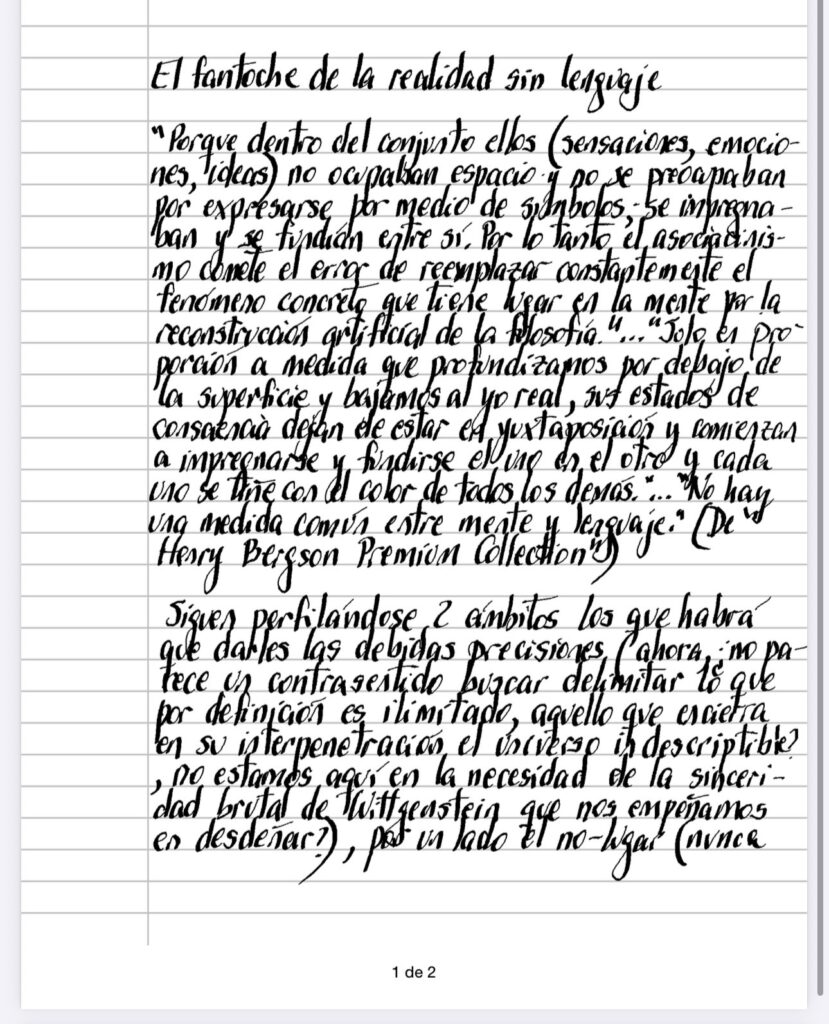 El fantoche de la realidad sin lenguaje
"Porque dentro del conjunto ellos (sensaciones, emocio-
nes, ideas) no ocupaban espacio y no se preocupaban
por expresarse por medio de símbolos; se impregna-
ban y se fundían entre sí. Por lo tanto el asociacinis-
mo comete el error de reemplazar constantemente el
fenómeno concreto que tiene lugar en la mente por la
reconstrucción artificial de la filosofía."..."Solo en pro-
porción a medida que profundizamos por debajo de
la superficie y bajamos al yo real, sus estados de
consciencia dejan de estar en yuxtaposición y comienzan
a impregnarse y fundirse el uno en el otro y cada
uno se tiñe con el color de todos los demás."..."No hay
una medida común entre mente y lenguaje." (De "
Henry Bergson Premium Collection")
Siguen perfilándose 2 ámbitos los que habrá
que darles las debidas precisiones (ahora, ¿no pa-
rece un contrasentido buscar delimitar lo que
por definición es ilimitado, aquello que encierra
en su interpenetración el universo indescriptible?
, no estamos aquí en la necesidad de la sinceri-
dad brutal de Wittgenstein que nos empeñamos
en desdeñar?), por un lado el no-lugar (nunca
1 de 2